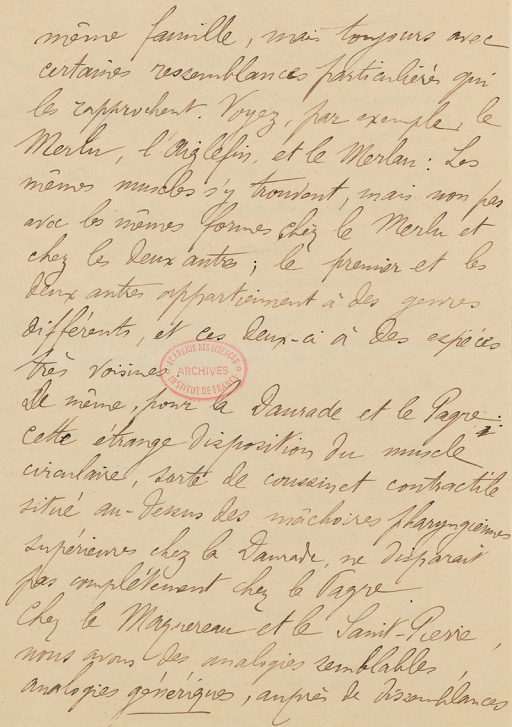 même famille, mais toujours avec
certaines ressemblances particulières qui
les rapprochent. Voyez, par exemple, le
Merlu, l'Aiglefin, et le Merlan : Les
mêmes muscles s'y trouvent, mais non pas
avec les mêmes formes chez le Merlu et
chez les deux autres ; le premier et les
deux autres appartiennent à des genres
différents, et ces deux-ci à des espèces
très voisines.
ACADEMIE DES SCIENCES
ARCHIVES
INSTITUT DE FRANCE
De même, pour la Daurade et le Pagre :
Cette étrange disposition du muscle
circulaire, sorte de coussinet contractile
situé au-dessus des mâchoires pharyngiennes
supérieures chez la Daurade, ne disparait
pas complètement chez le Pagre.
Chez le Maquereau et le Saint-Pierre,
nous avons des analogies semblables,
analogies génériques, auprès de dissemblances